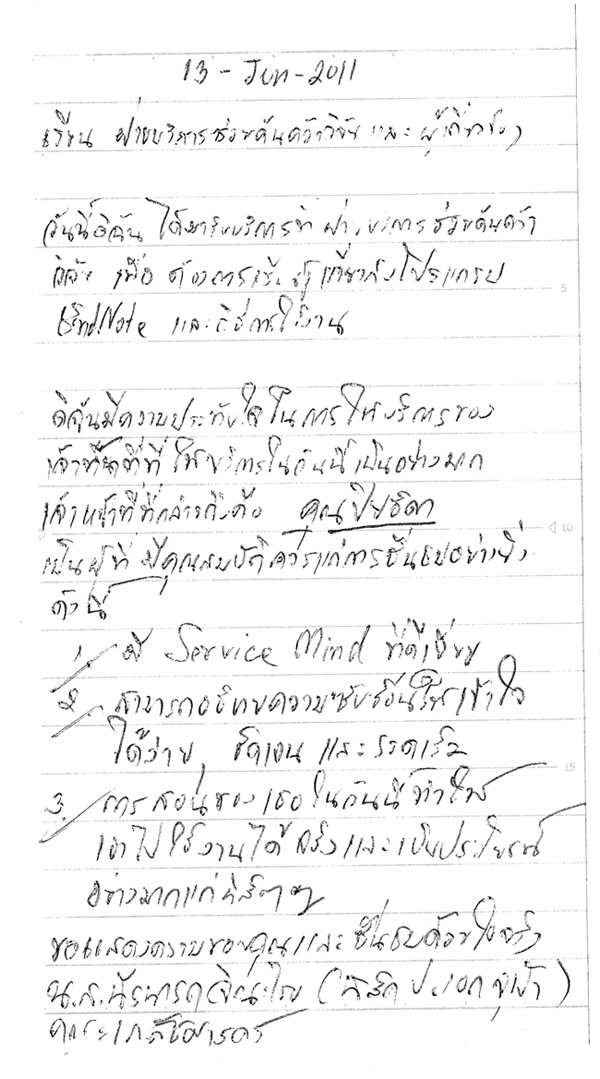 13 - Jun - 2011
เรียน ฝ่ายบริการช่วยค้นคว้าวิจัย และ ผู้เกี่ยวข้อง
วันนี้ดิฉัน ได้มารับบริการที่ ฝ่ายบริการช่วยค้นคว้า
วิจัย เพื่อ ต้องการเรียนรู้เกี่ยวกับโปรแกรม
EndNote และวิธีการใช้งาน
ดิฉันมีความประทับใจในการให้บริการของ
เจ้าหน้าที่ที่ให้บริการในวันนี้เป็นอย่างมาก
เจ้าหน้าที่ที่กล่าวถึงคือ คุณปิยธิดา
เป็นผู้ที่มีคุณสมบัติควรแก่การชื่นชมอย่างยิ่ง
ดังนี้
1. มี Service Mind ที่ดีเยี่ยม
2. สามารถอธิบายความซับซ้อนให้เข้าใจ
ได้ง่าย, ชัดเจน และรวดเร็ว
3. การสอนของเธอในวันนี้ทำให้
เอาไปใช้งานได้จริงและเป็นประโยชน์
อย่างมากแก่นิสิตๆ
ขอแสดงความขอบคุณและชื่นชมด้วยใจจริง
น.ส. (นิสิต ป.เอก จุฬาฯ)
คณะเภสัชศาสตร์